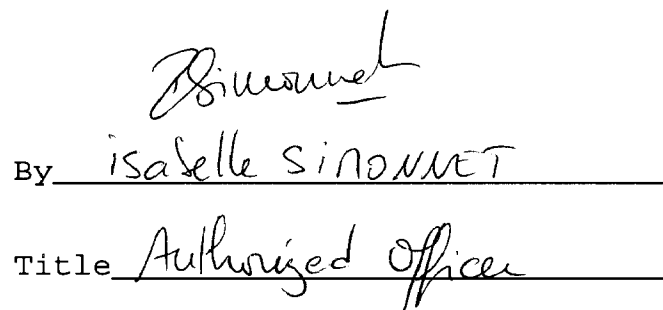 ISimonnet
By isabelle SIMONNET
Title Authorized Officer